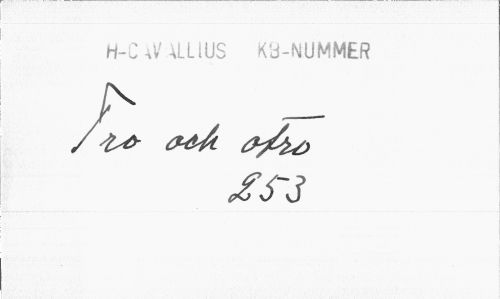 H-CAVALLIUS KB-NUMMER
Tro och otro
253